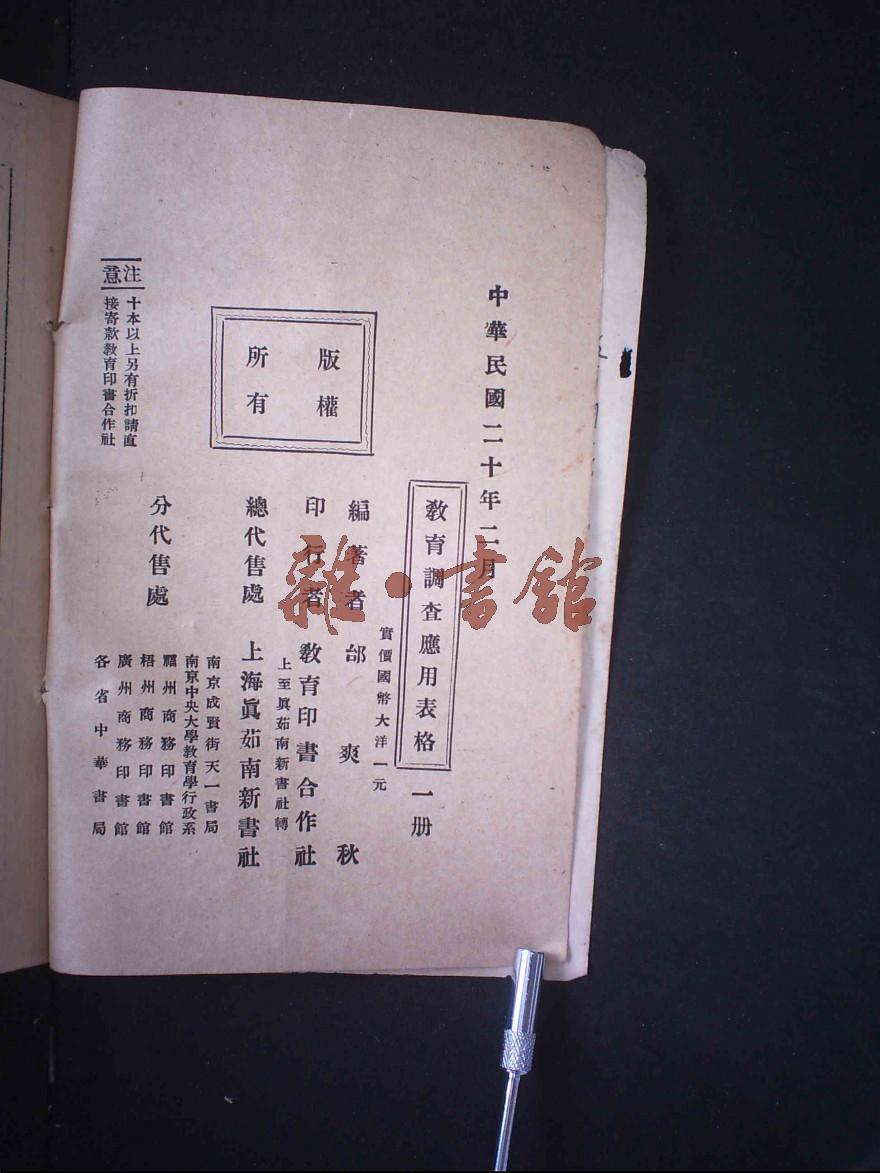 中華民國二十年二月
教育調查應用表格 一册
實價國幣大洋一元
編著者 邰爽秋
印行者 教育印書合作社
上至眞茹南新書社轉
總代售處 上海眞茹南新書社
分代售處
南京成賢街天一書局
南京中央大學教育學行政系
福州商務印書館
梧州商務印書館
廣州商務印書館
各省中華書局
版權
所有
注意
十本以上另有折扣請直
接寄款教育印書合作社
雜·書館